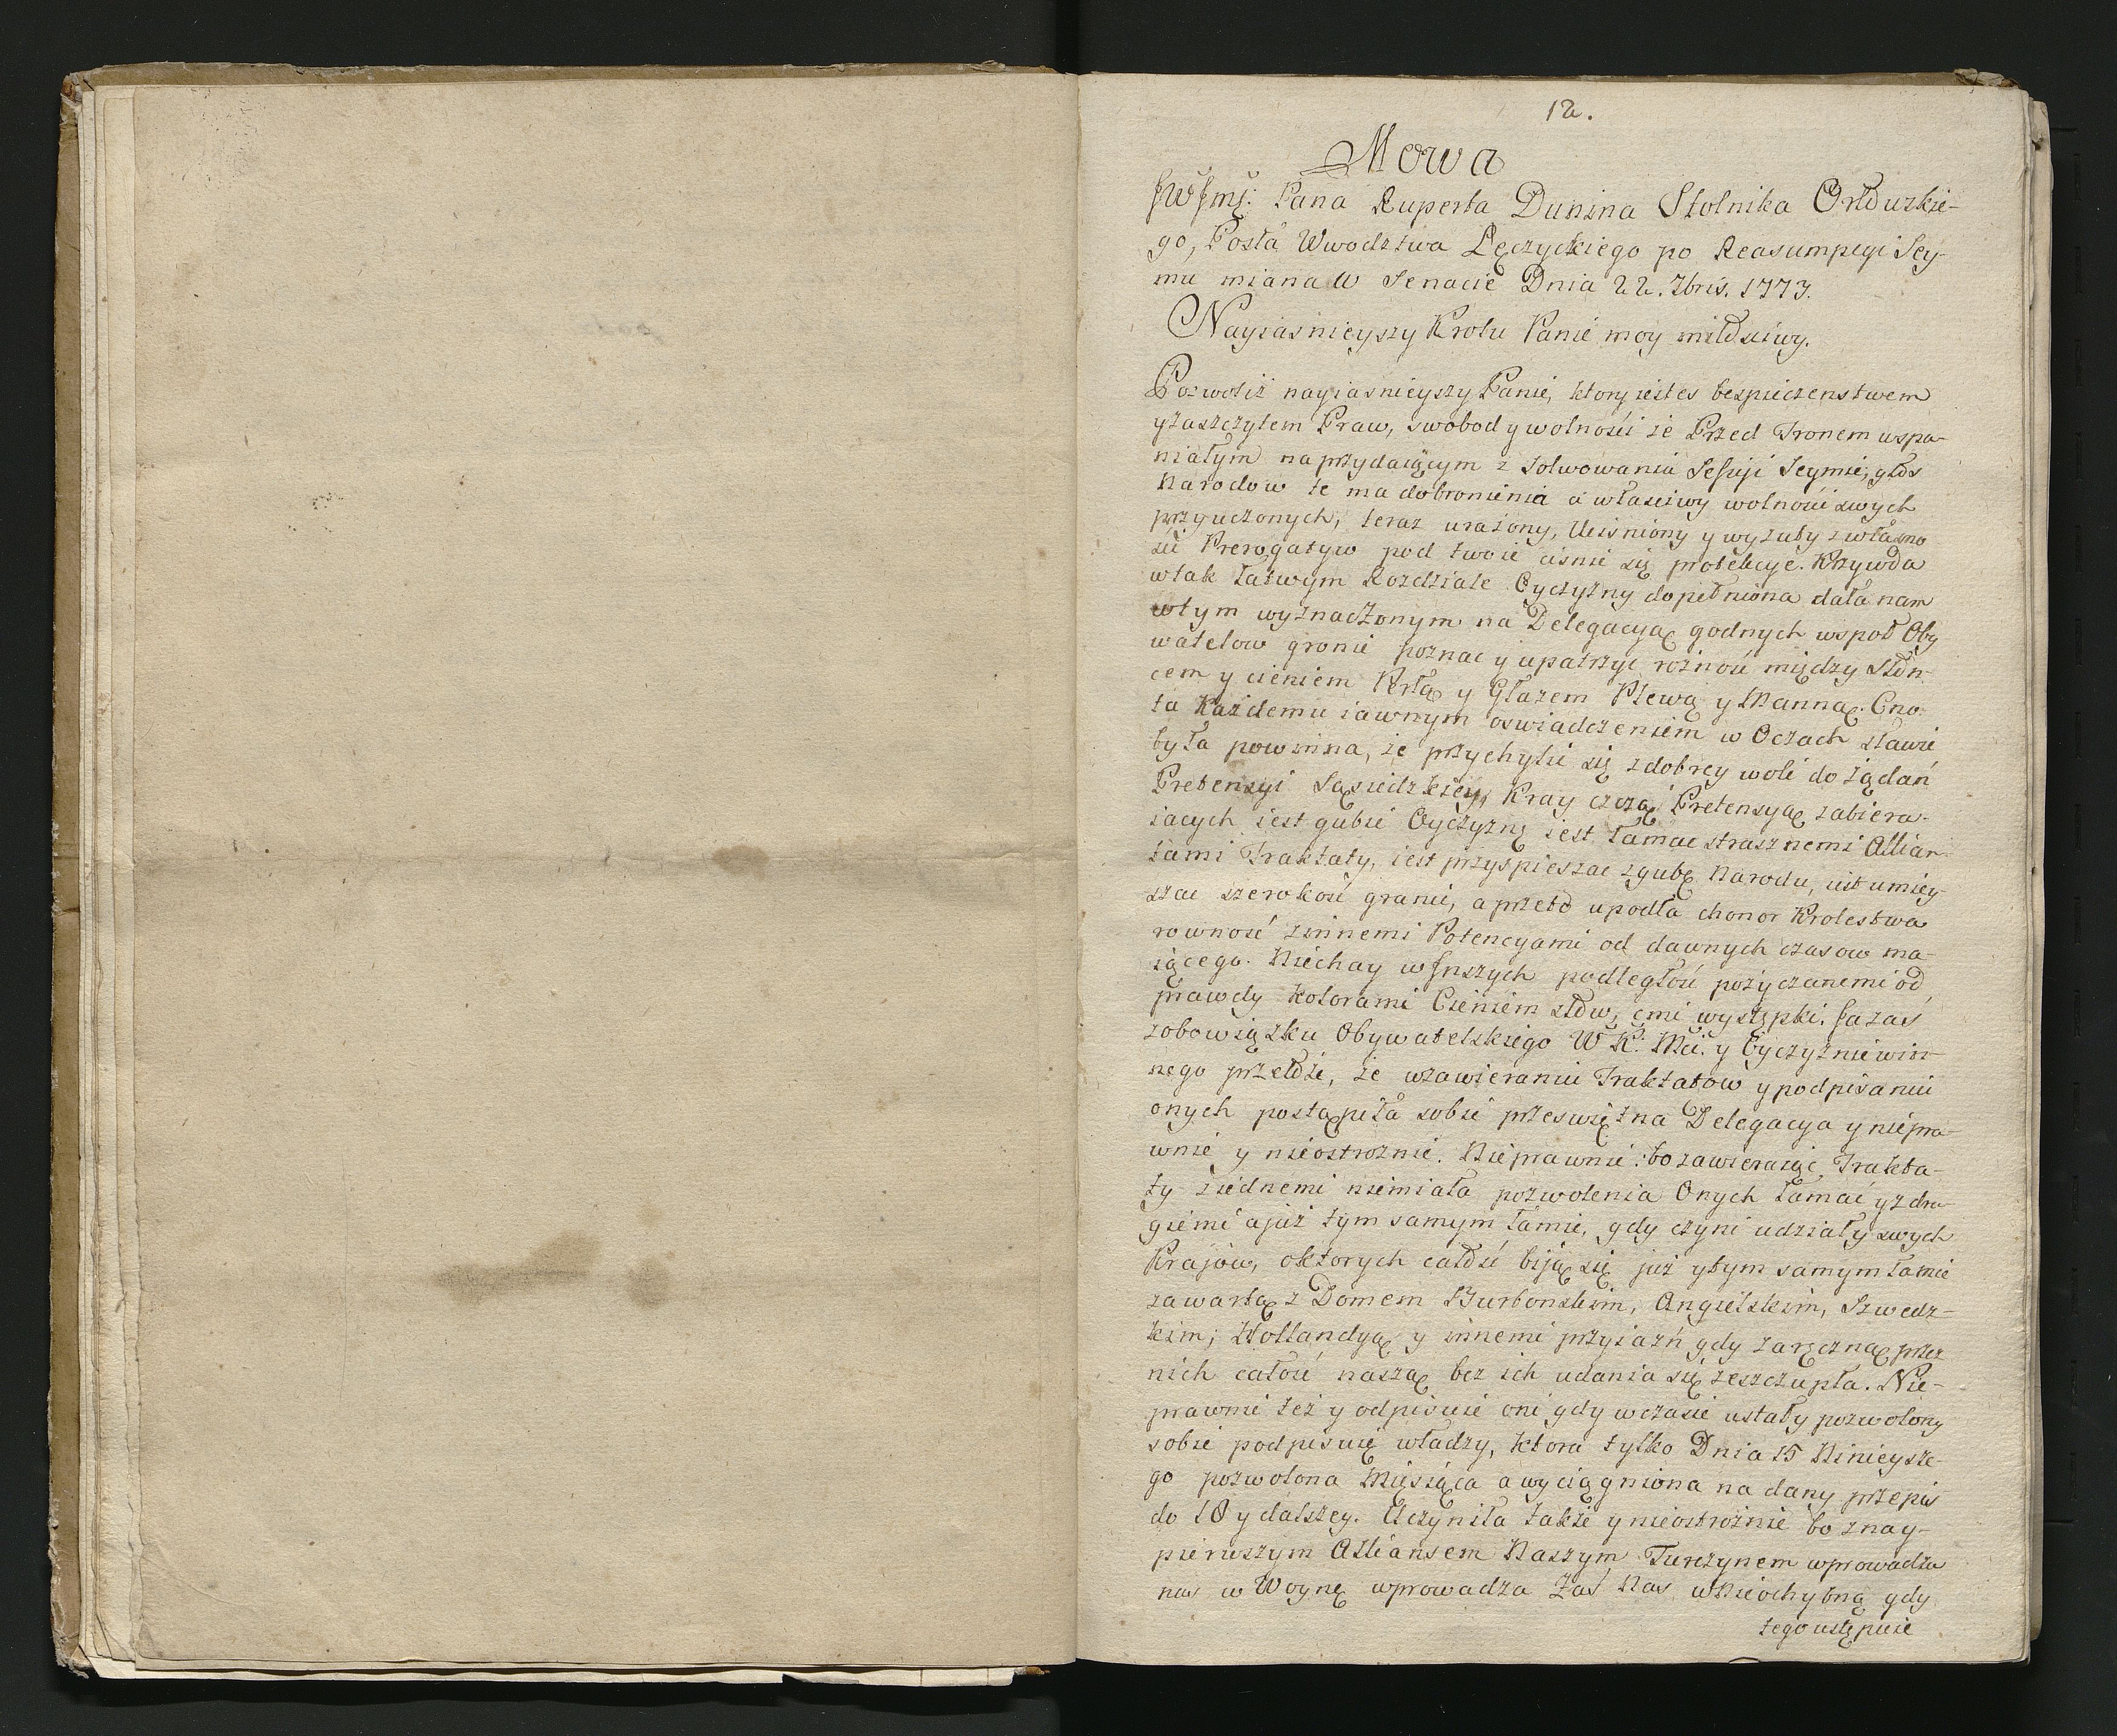 12.
Mowa
JWJmć: Pana Ruperta Dunina Stolnika Orłowskie-
go, Posła Wwodztwa Łęczyckiego po Reasumpcyi Sey-
mu miana w Senacie Dnia 22. 7bris. 1773.
Nayiasnieyszy Krolu Panie moy miłościwy.
Pozwolisz nayiasnieyszy Panie, ktory iestes bespieczenstwem
y zaszczytem Praw, swobod y wolności że Przed Tronem wspa-
niałym na przydaiącym z solwowania Sessyi Seymie, głos
Narodow te ma do bronienia a właściwy wolności swych
przyuczonych, teraz urażony, Uciśniony y wyzuty z własno
ści Prerogatyw pod twoie ciśnie się protekcye. Krzywda
w tak łatwym Rozdziale Oyczyzny dopełniona dała nam
w tym wyznaczonym na Delegacyą godnych wspoł Oby-
watelow gronie poznac y upatrzyc rożność między słon-
cem y cieniem Perłą y Głazem Plewą y Manną. Cno-
ta każdemu iawnym oswiadczeniem w Oczach stawić
była powinna, że przychylić się z dobrey woli do żądań
Pretensyi Sąsiedzkiey, Kray czczą Pretensyą zabiera-
iacych iest gubić Oyczyznę iest łamac strasznemi Allian-
tami Traktaty, iest przyspieszac zgubę Narodu, iest umiey-
szac szerokość granic, a przeto upodla chonor Krolestwa
rowność z innemi Potencyami od dawnych czasow ma-
iącego. Niechay w Jnszych podległość pożyczanemi od
prawdy kolorami Cieniem słow, ćmi występki. Ja zas
z obowiązku Obywatelskiego W K: Mci. y Oyczyznie win-
nego przełożę, że w zawieraniu Traktatow y podpisaniu
onych postąpiła sobie prześwietna Delegacya y niepra-
wnie y nieostrożnie. Nieprawnie: bo zawieraiąc Trakta-
ty z iednemi niemiała pozwolenia Onych łamać y z dru-
giemi a już tym samym łamie, gdy czyni udziały swych
Krajów, o ktorych całość biją się już y tym samym łamie
zawartą z Domem Burbonskim, Angielskim, Szwedz-
kim, Hollandyą y innemi przyiaźń gdy zaręczną przez
nich całość naszą bez ich udania się zeszczupla. Nie-
prawnie też y odpisuie oni gdy w czasie ustały pozwolony
sobie podpisuię władzy, ktora tylko Dnia 15 Ninieysze-
go pozwolona Miesiąca a wyciągniona na dany przepis
do 18 y dalszey. Uczyniła także y nieostrożnie bo z nay-
pierwszym Alliansem Naszym Turczynem wprowadza
nas w Woynę wprowadza Zaś Nas w Nieochybną gdy
tego ustępuie